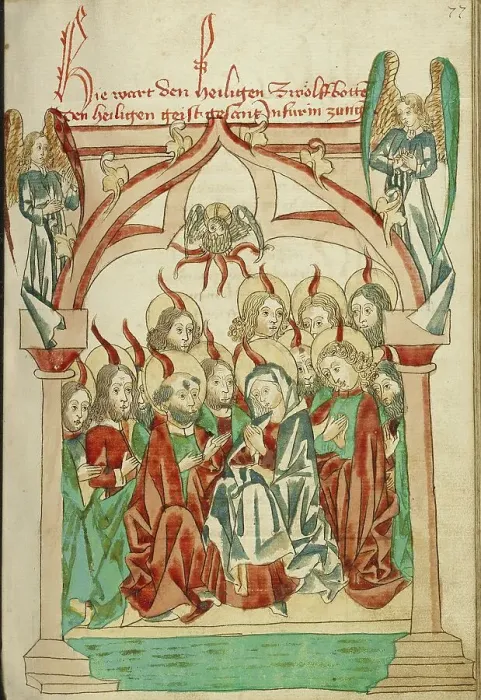 77
Hie wart den heiligen Zwölffbotte
den heiligen geist gesant In fürin zung